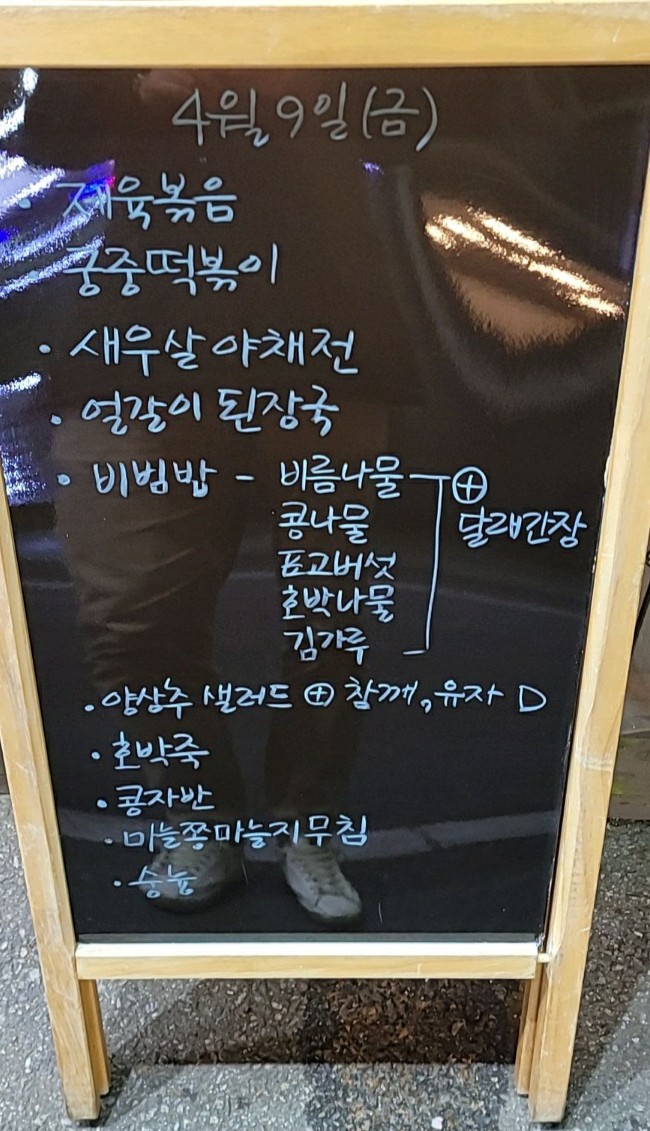 4월 9일(금)
· 제육볶음
· 궁중떡볶이
· 새우살 야채전
· 얼갈이 된장국
· 비빔밥 - 비름나물 ⊕
콩나물 달래간장
표고버섯
호박나물
김가루
· 양상추 샐러드 ⊕ 참깨, 유자 D
· 호박죽
· 콩자반
· 마늘쫑마늘지무침
· 숭늉